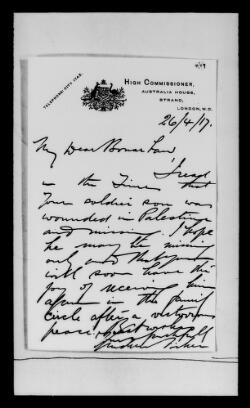 HIGH COMMISSIONER,
AUSTRALIA HOUSE,
STRAND,
LONDON, W.C.
TELEPHONE: CITY 1742.
26/4/17.
My Dear Bonar Law
I read
in the Times that
your soldier son was
wounded in Palestine
and missing. I hope
he may be missing
only and that you
will soon have the
joy of receiving him
again in the family
circle after a victorious
peace. Best wishes
Yours faithfully
Andrew Fisher